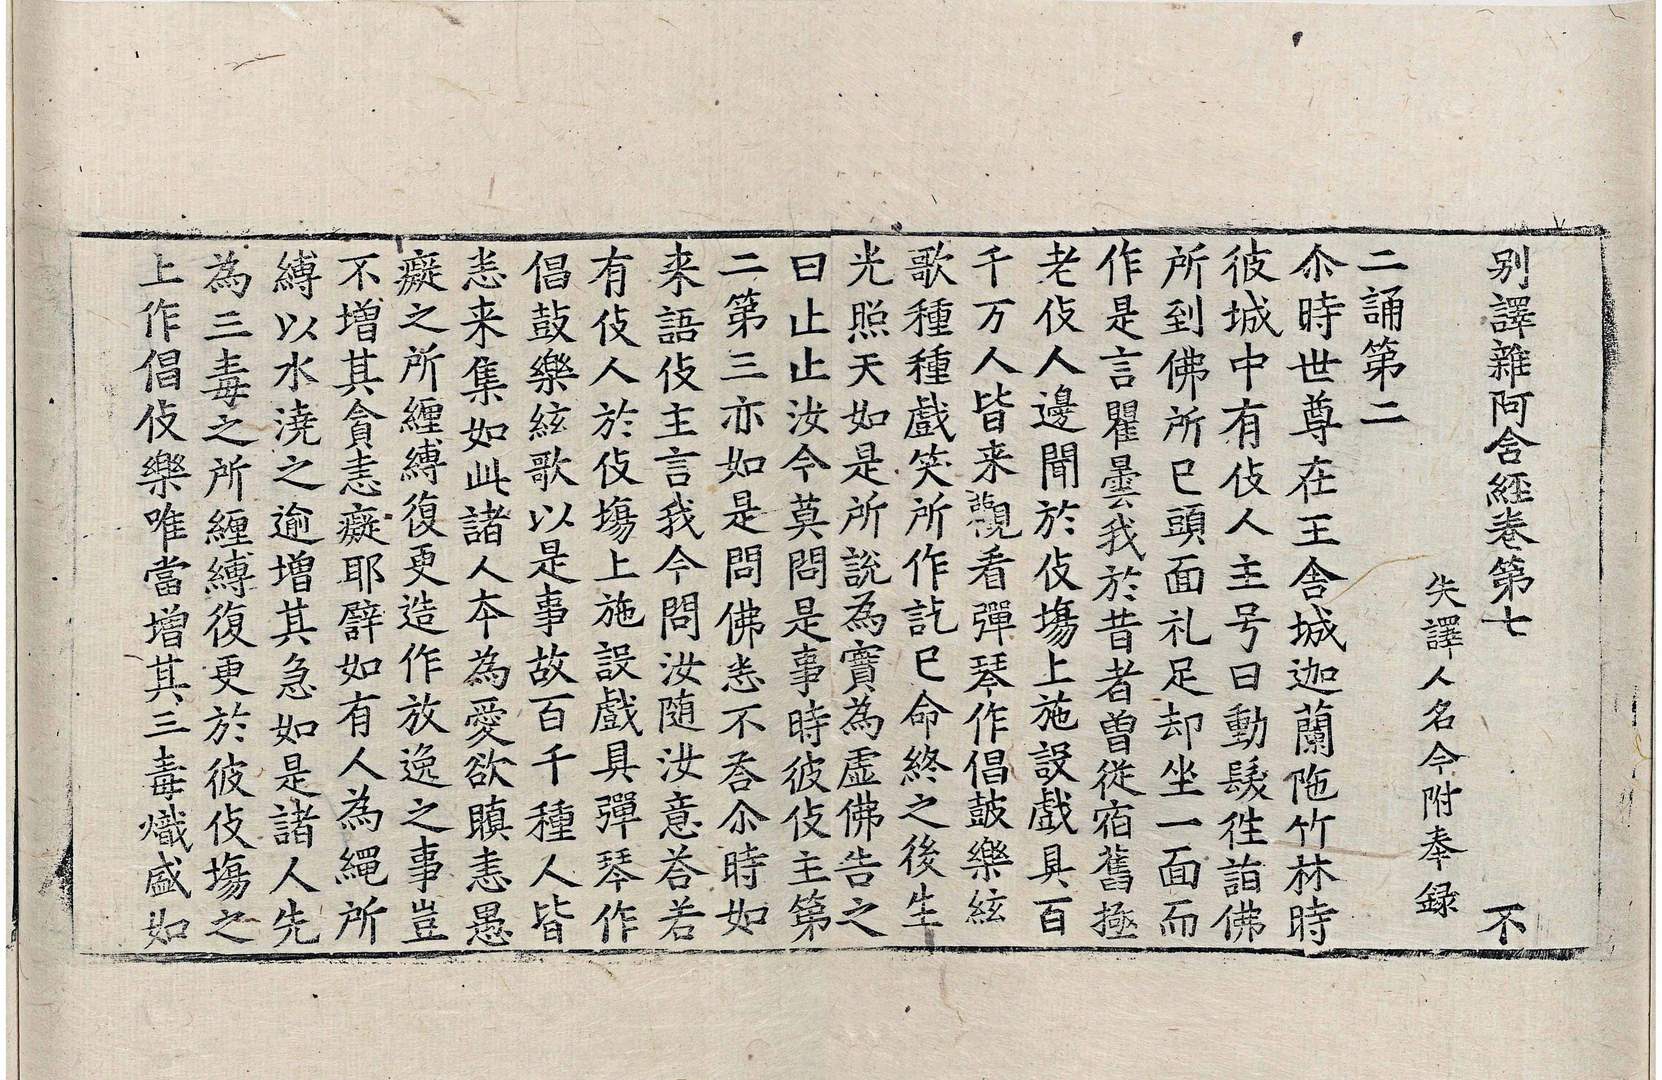 别譯雜阿含經卷第七 不
失譯人名今附奉録
二誦第二
尒時世尊在王舍城迦蘭陁竹林時
彼城中有伎人主号曰動髮徃詣佛
所到佛所已頭面礼足却坐一面而
作是言瞿曇我於昔者曽從宿舊極
老伎人邊聞於伎場上施設戲具百
千万人皆来觀看彈琴作倡鼓樂絃
歌種種戲笑所作訖已命終之後生
光照天如是所說為實為虛佛告之
曰止止汝今莫問是事時彼伎主第
二第三亦如是問佛悉不荅尒時如
来語伎主言我今問汝随汝意荅若
有伎人於伎場上施設戲具彈琴作
倡鼓樂絃歌以是事故百千種人皆
悉来集如此諸人本為愛欲瞋恚愚
癡之所纒縛復更造作放逸之事豈
不增其貪恚癡耶譬如有人為繩所
縛以水澆之逾增其急如是諸人先
為三毒之所纒縛復更於彼伎場之
上作倡伎樂唯當增其三毒熾盛如